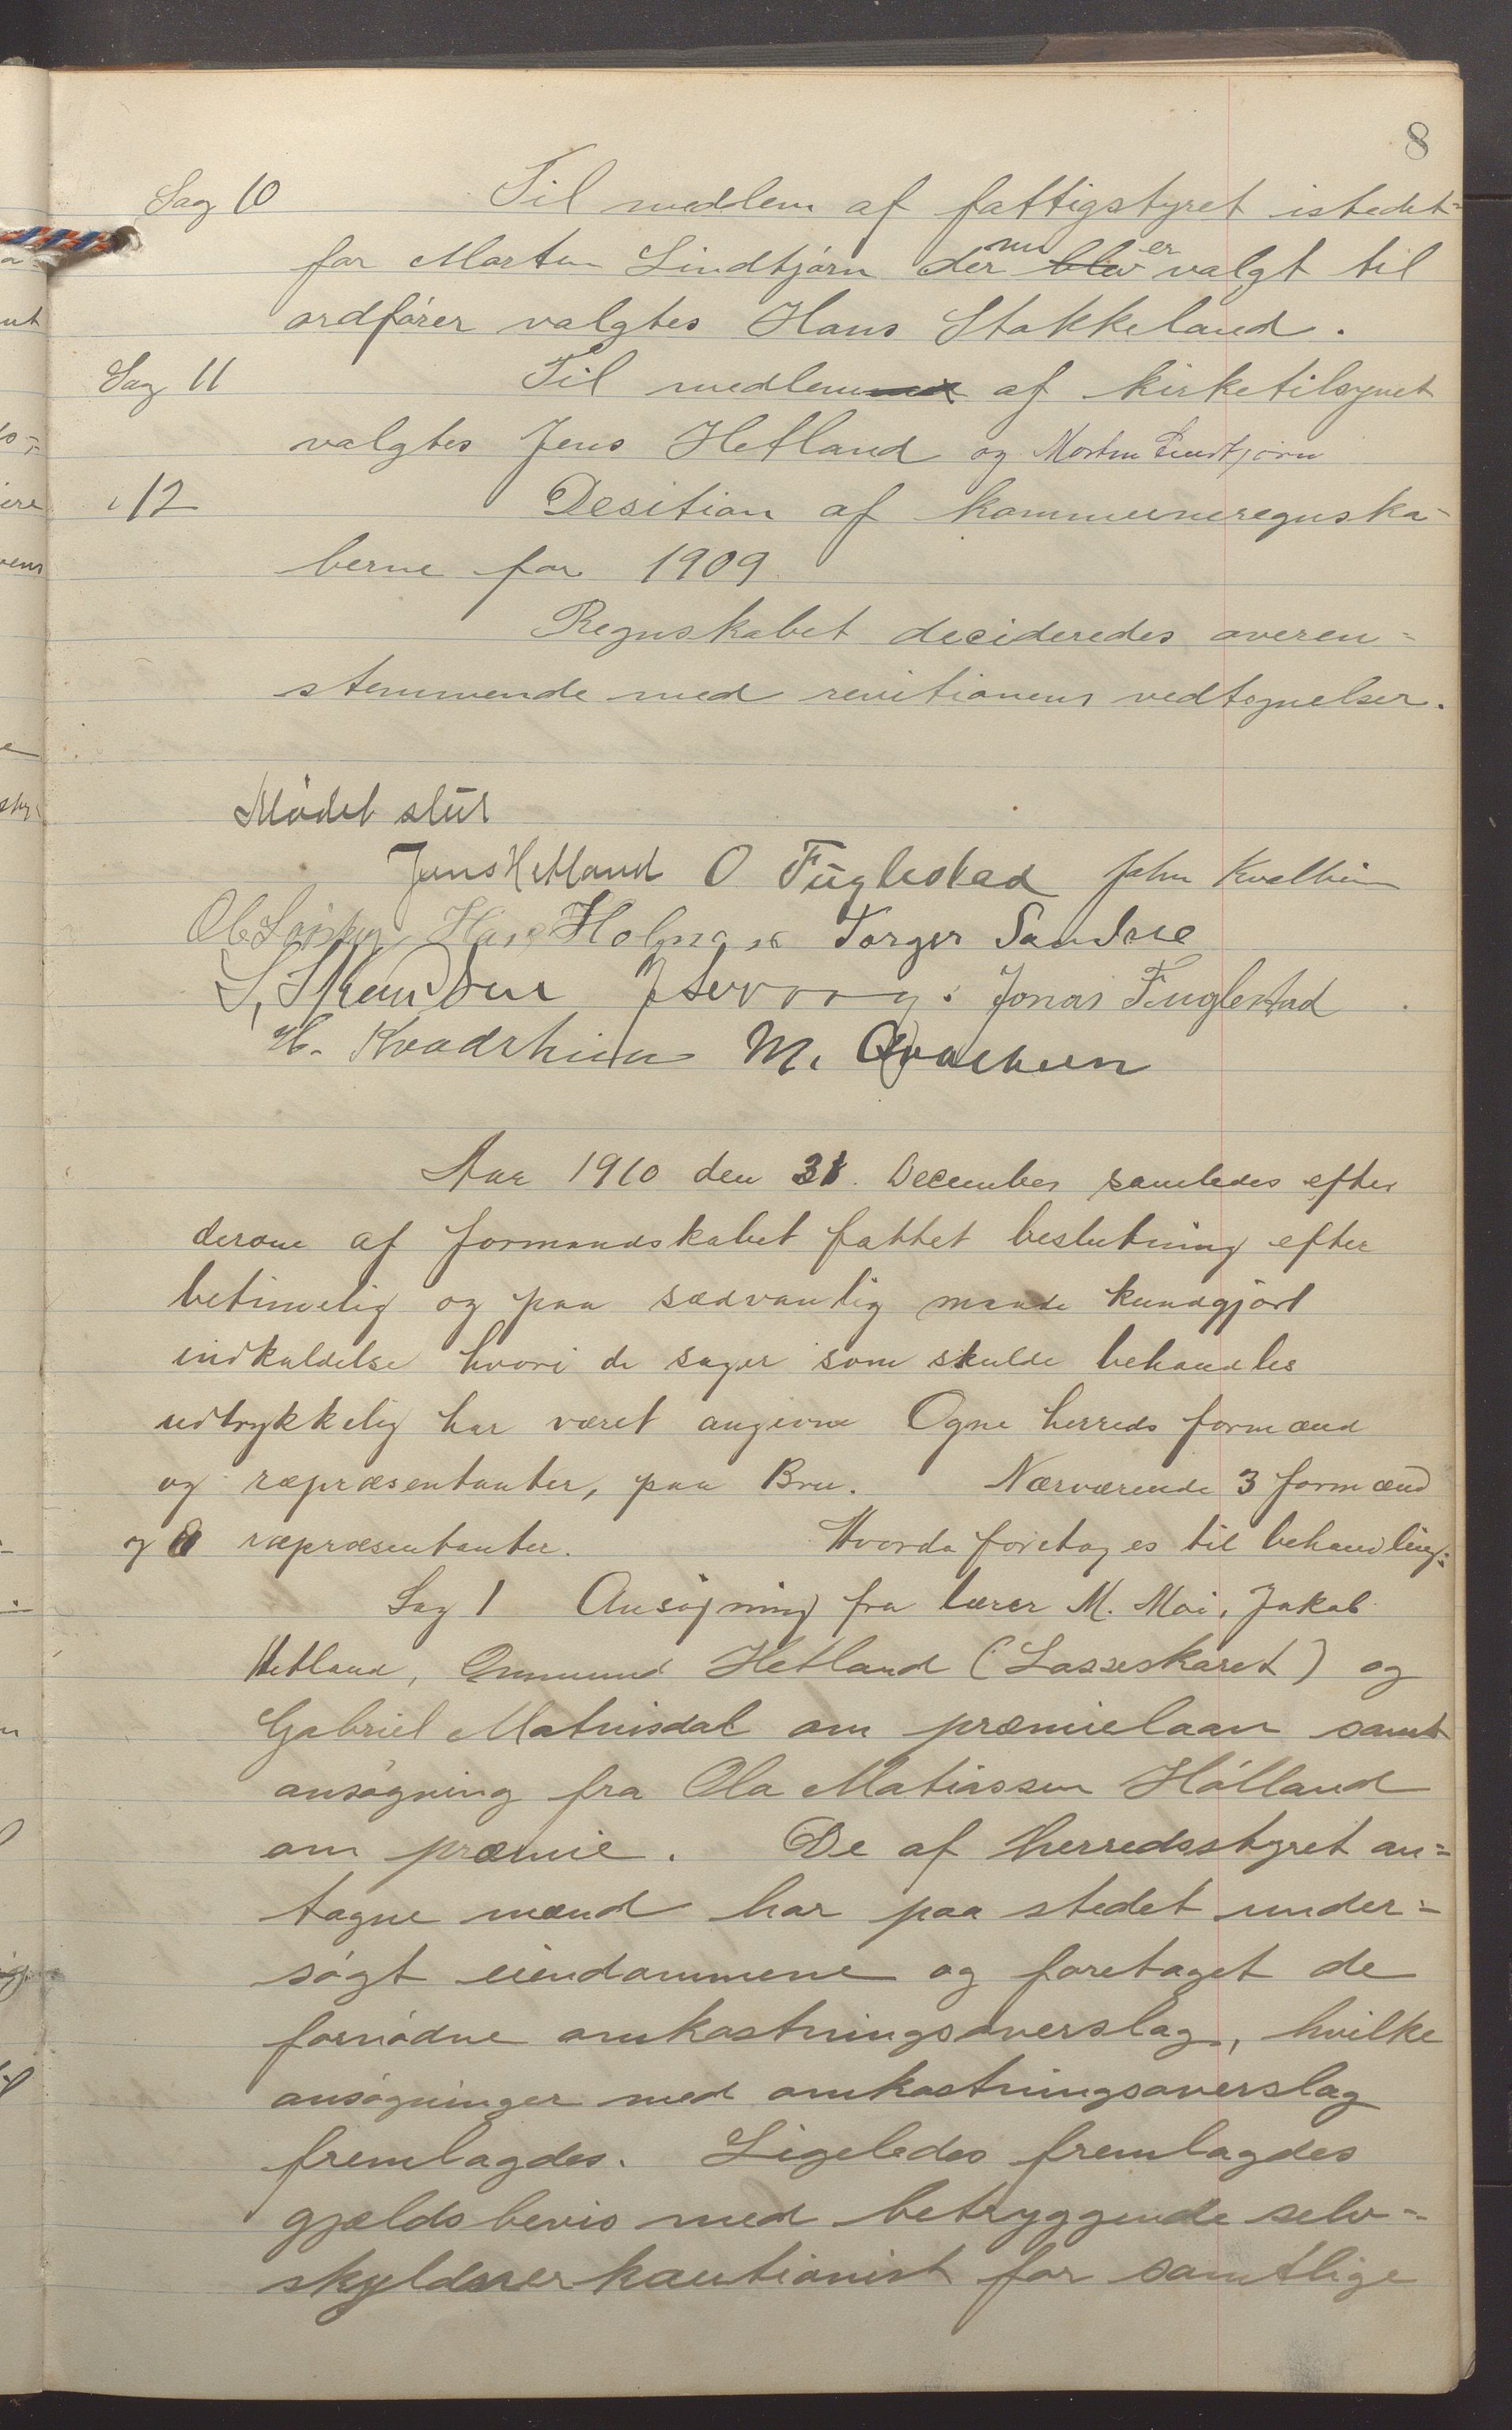 8
Sag 10 Til medlem af fattigstyret istedet-
for Morten Lindtjørn der nu blev er valgt til
ordfører valgtes Hans Stokkeland.
Sag 11 Til medlem af kirketilsynet
valgtes Jens Hetland og Morten Lindtjørn
" 12 Desition af kommuneregnska-
berne for 1909
Regnskabet decideredes overen=
stemmende med revitionens vedtegnelser.
Mødet slut
Jens Hetland O Fuglestad John Kvalheim
Hans Torger Sandsae
Jonas Fuglestad
H. M.
Aar 1910 den 31. December samledes efter
derom af formandskabet fattet beslutning efter
betimelig og paa sædvanlig maade kundgjort
indkaldelse hvori de sager som skulde behandles
udtrykkelig har været angivne Ogne herreds formænd
og repræsentanter, paa Bru. Nærværende 3 formænd
og 8 repræsentanter. Hvorda foretoges til behandling:
Sag 1 Ansøgning fra lærer M. Moi, Jakob
Hetland, Gunmund Hetland (Lasseskaret) og
Gabriel Matnisdal om præmielaan samt
ansøgning fra Ola Matiassen Hålland
om præmie. De af herredsstyret an=
tagne mænd har paa stedet under=
søgt eiendommene og foretaget de
fornødne omkostningsoverslag, hvilke
ansøgninger med omkostningsoverslag
fremlagdes. Ligeledes fremlagdes
gjældsbevis med betryggende selv=
skyldnerkautionist for samtlige